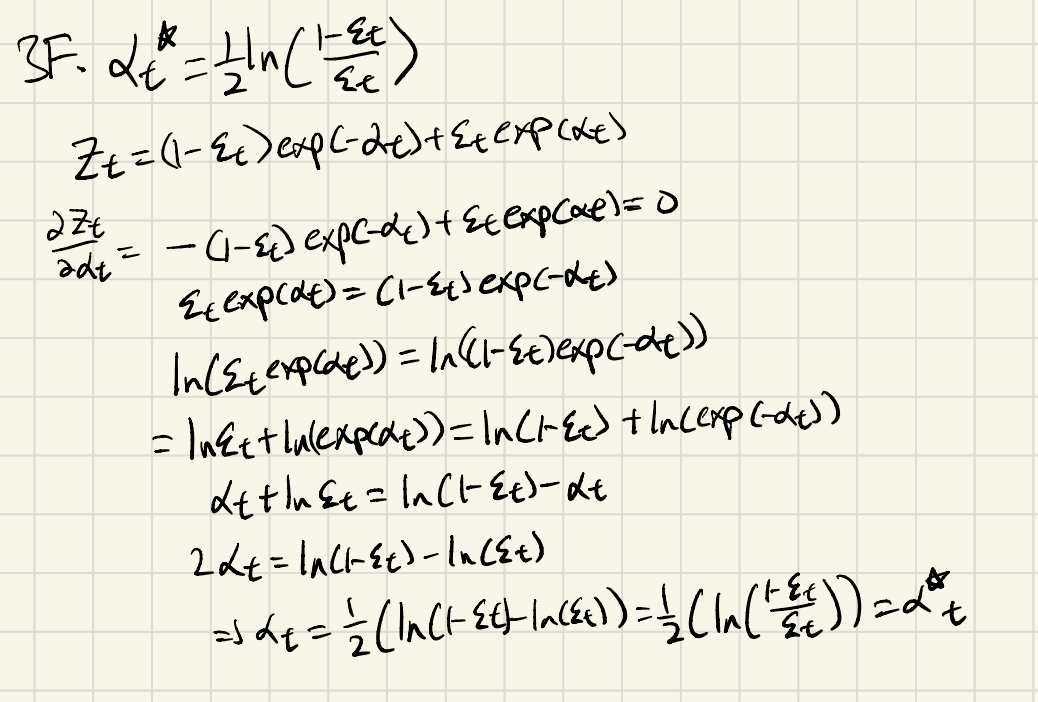 3F. αₜ* = 1/2 ln((1-εₜ)/εₜ)
Zₜ = (1-εₜ)exp(-αₜ) + εₜ exp(αₜ)
∂Zₜ/∂αₜ = -(1-εₜ) exp(-αₜ) + εₜ exp(αₜ) = 0
εₜ exp(αₜ) = (1-εₜ) exp(-αₜ)
ln(εₜ exp(αₜ)) = ln((1-εₜ)exp(-αₜ))
= ln εₜ + ln(exp(αₜ)) = ln(1-εₜ) + ln(exp(-αₜ))
αₜ + ln εₜ = ln(1-εₜ) - αₜ
2αₜ = ln(1-εₜ) - ln(εₜ)
=> αₜ = 1/2 (ln(1-εₜ) - ln(εₜ)) = 1/2 (ln((1-εₜ)/εₜ)) = α*ₜ